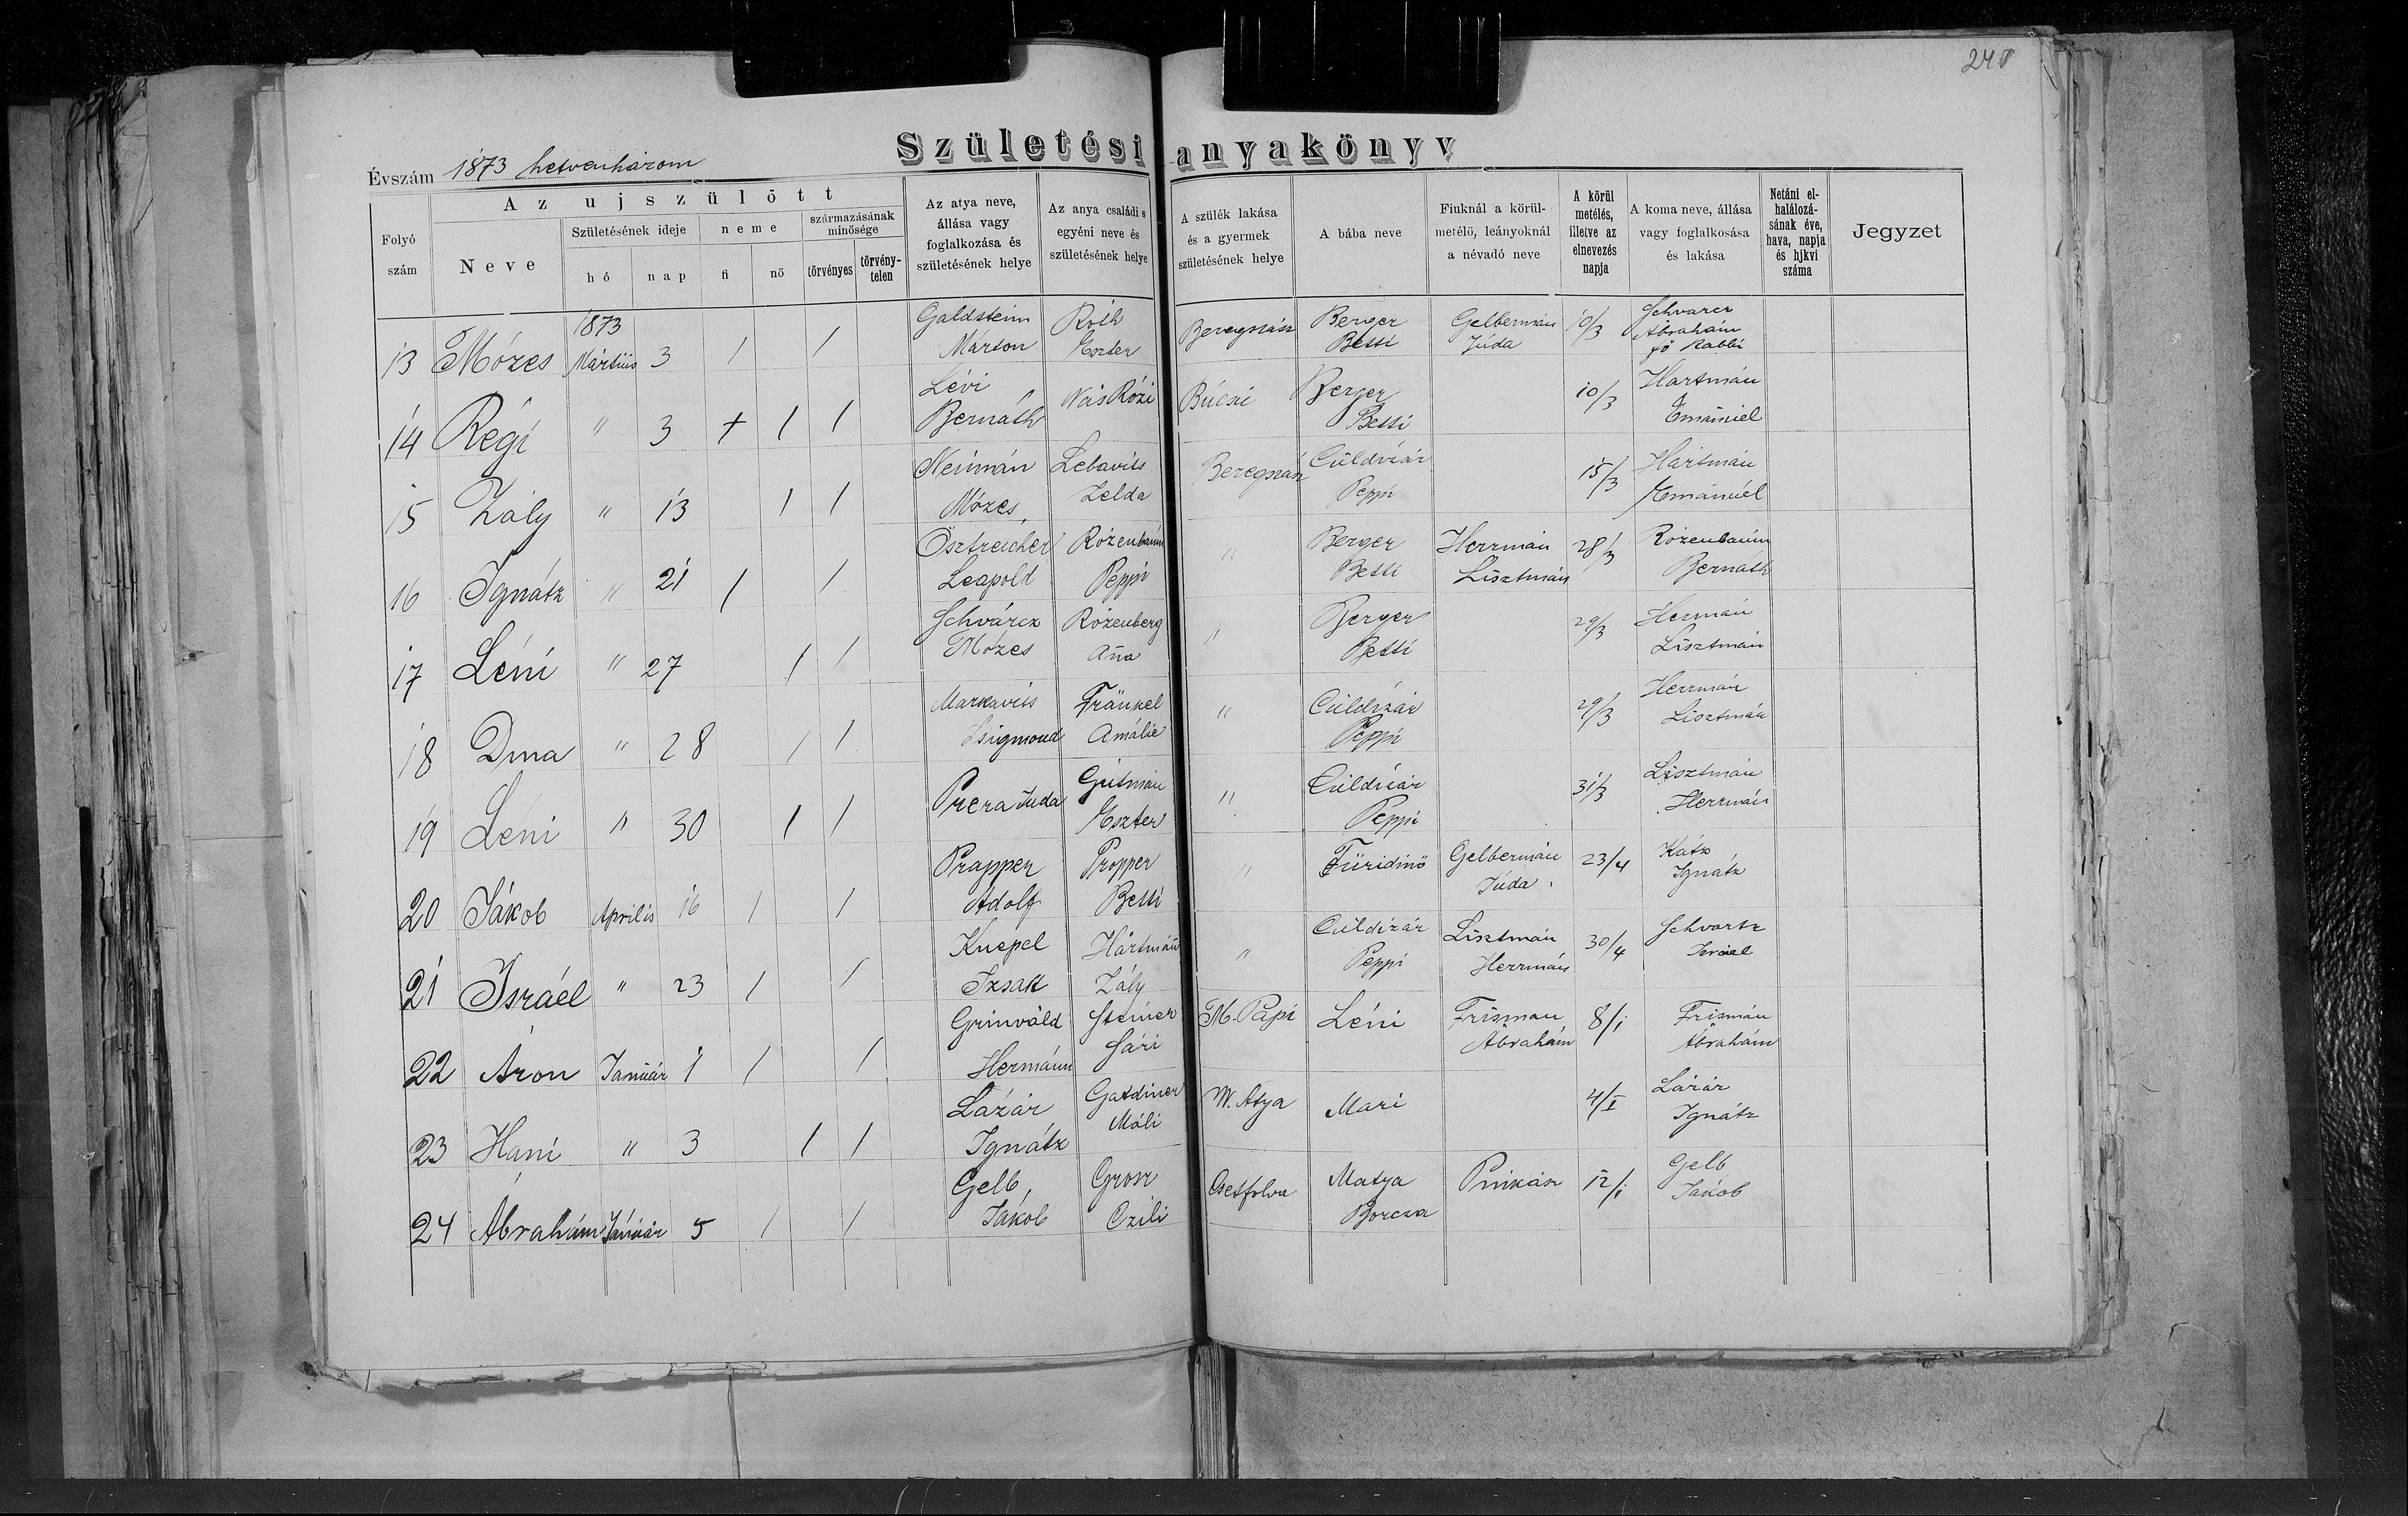 240
Születési anyakönyv
Évszám 1873 hetvenhárom
Folyó szám
Az ujszülött
Neve
Születésének ideje
hó
nap
neme
fi
nő
származásának minősége
törvényes
törvény-telen
Az atya neve, állása vagy foglalkozása és születésének helye
Az anya családi s egyéni neve és születésének helye
A szülék lakása és a gyermek születésének helye
A bába neve
Fiuknál a körül-metélő, leányoknál a névadó neve
A körül metélés, illetve az elnevezés napja
A koma neve, állása vagy foglalkosása és lakása
Netáni el-halálozá-sának éve, hava, napja és hjkvi száma
Jegyzet
13 Mózes 1873 Mártiús 3 / / Galdstein Márton Róth Eszter Beregszász Berger Betti Gelbermán Júda 10/3 Schvarcz Ábrahám fő Rabbi
14 Régi " 3 + / / Lévi Bernáth Vais Rózi Búcsú Berger Betti 10/3 Hartmán Emánúel
15 Zály " 13 / / Neúmán Mózes Lebavits Zelda Beregszász Cúldizár Peppi 15/3 Hartmán Emánúel
16 Ignátz " 21 / / Ösztreicher Leapold Rózenbaúm Peppi " Berger Betti Herrmán Lisztmán 28/3 Rózenbaúm Bernáth
17 Léni " 27 / / Schvárcz Mózes Rózenberg Ana " Berger Betti 29/3 Hermán Lisztmán
18 Dina " 28 / / Markavits Zsigmond Fränkel Amália " Cúldizár Peppi 29/3 Herrmán Lisztmán
19 Léni " 30 / / Prera Juda Gútmán Eszter " Cúldizár Peppi 31/3 Lisztmán Herrmán
20 Jákob Aprilis 16 / / Prapper Adolf Propper Betti " Füridinö Gelbermán Júda 23/4 Kátz Ignátz
21 Israél " 23 / / Knepel Izsak Hartmán Zály " Cúldizár Peppi Lisztmán Herrmán 30/4 Schvartz Isráel
22 Áron Január 1 / / Grinváld Hermánn Steiner Sári M. Papi Léni Frisman Ábrahám 8/1 Frismán Ábrahám
23 Hani " 3 / / Lázár Ignátz Gatdiner Máli M. Atya Mari 4/I Lázár Ignátz
24 Ábrahám Január 5 / / Gelb Jákob Grosz Czili Csetfolva Matya Borcza Pinkász 12/1 Gelb Jákob